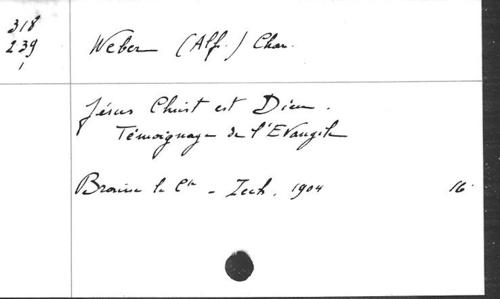 318
239
1
Weber (Alf.) Chan.
Jésus Christ est Dieu.
Témoignage de l'Evangile
Braine le Cte - Zech. 1904 16.